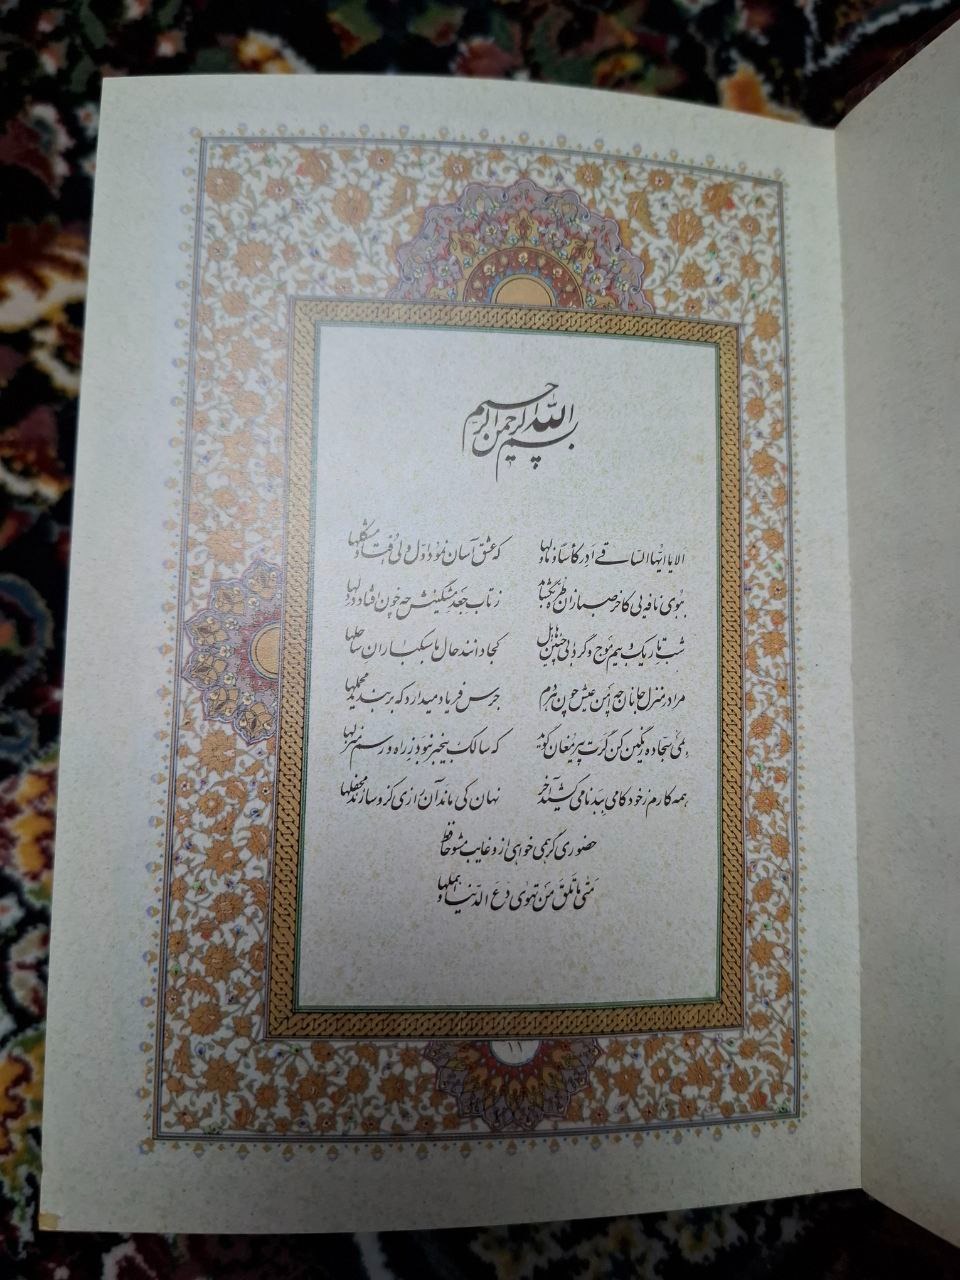 بسم الله الرحمن الرحیم
الا یا ایها الساقی ادر کاسا و ناولها که عشق آسان نمود اول ولی افتاد مشکلها
ببوی نافه یی کاخر صبا زان طره بگشاید ز تاب جعد مشکینش چه خون افتاد در دلها
شب تاریک و بیم موج و گردابی چنین هایل کجا دانند حال ما سبکباران ساحلها
مرا در منزل جانان چه امن عیش چون هر دم جرس فریاد میدارد که بربندید محملها
بمی سجاده رنگین کن گرت پیر مغان گوید که سالک بیخبر نبود ز راه و رسم منزلها
همه کارم ز خود کامی ببدنامی کشید آخر نهان کی ماند آن رازی کزو سازند محفلها
حضوری گر همی خواهی ازو غایب مشو حافظ
متی ما تلق من تهوی دع الدنیا و اهملها
۱۱